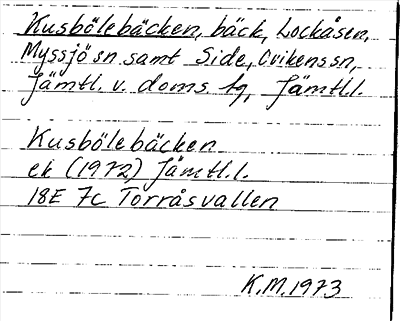 Kusbölebäcken, bäck, Lockåsen,
Myssjö sn samt Side, Ovikens sn,
Jämtl. v. doms tg, Jämtl.l.
Kusbölebäcken
ek (1972) Jämtl.l.
18E 7c Torråsvallen
K.M. 1973